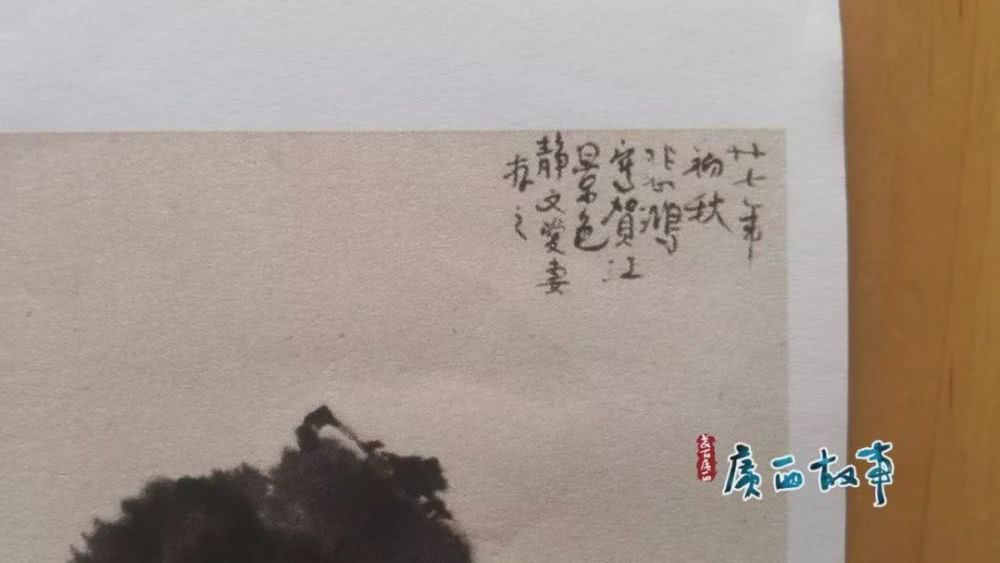 廿七年
初秋
悲鴻
寫賀江
景色
静文愛妻
存之
廣西故事